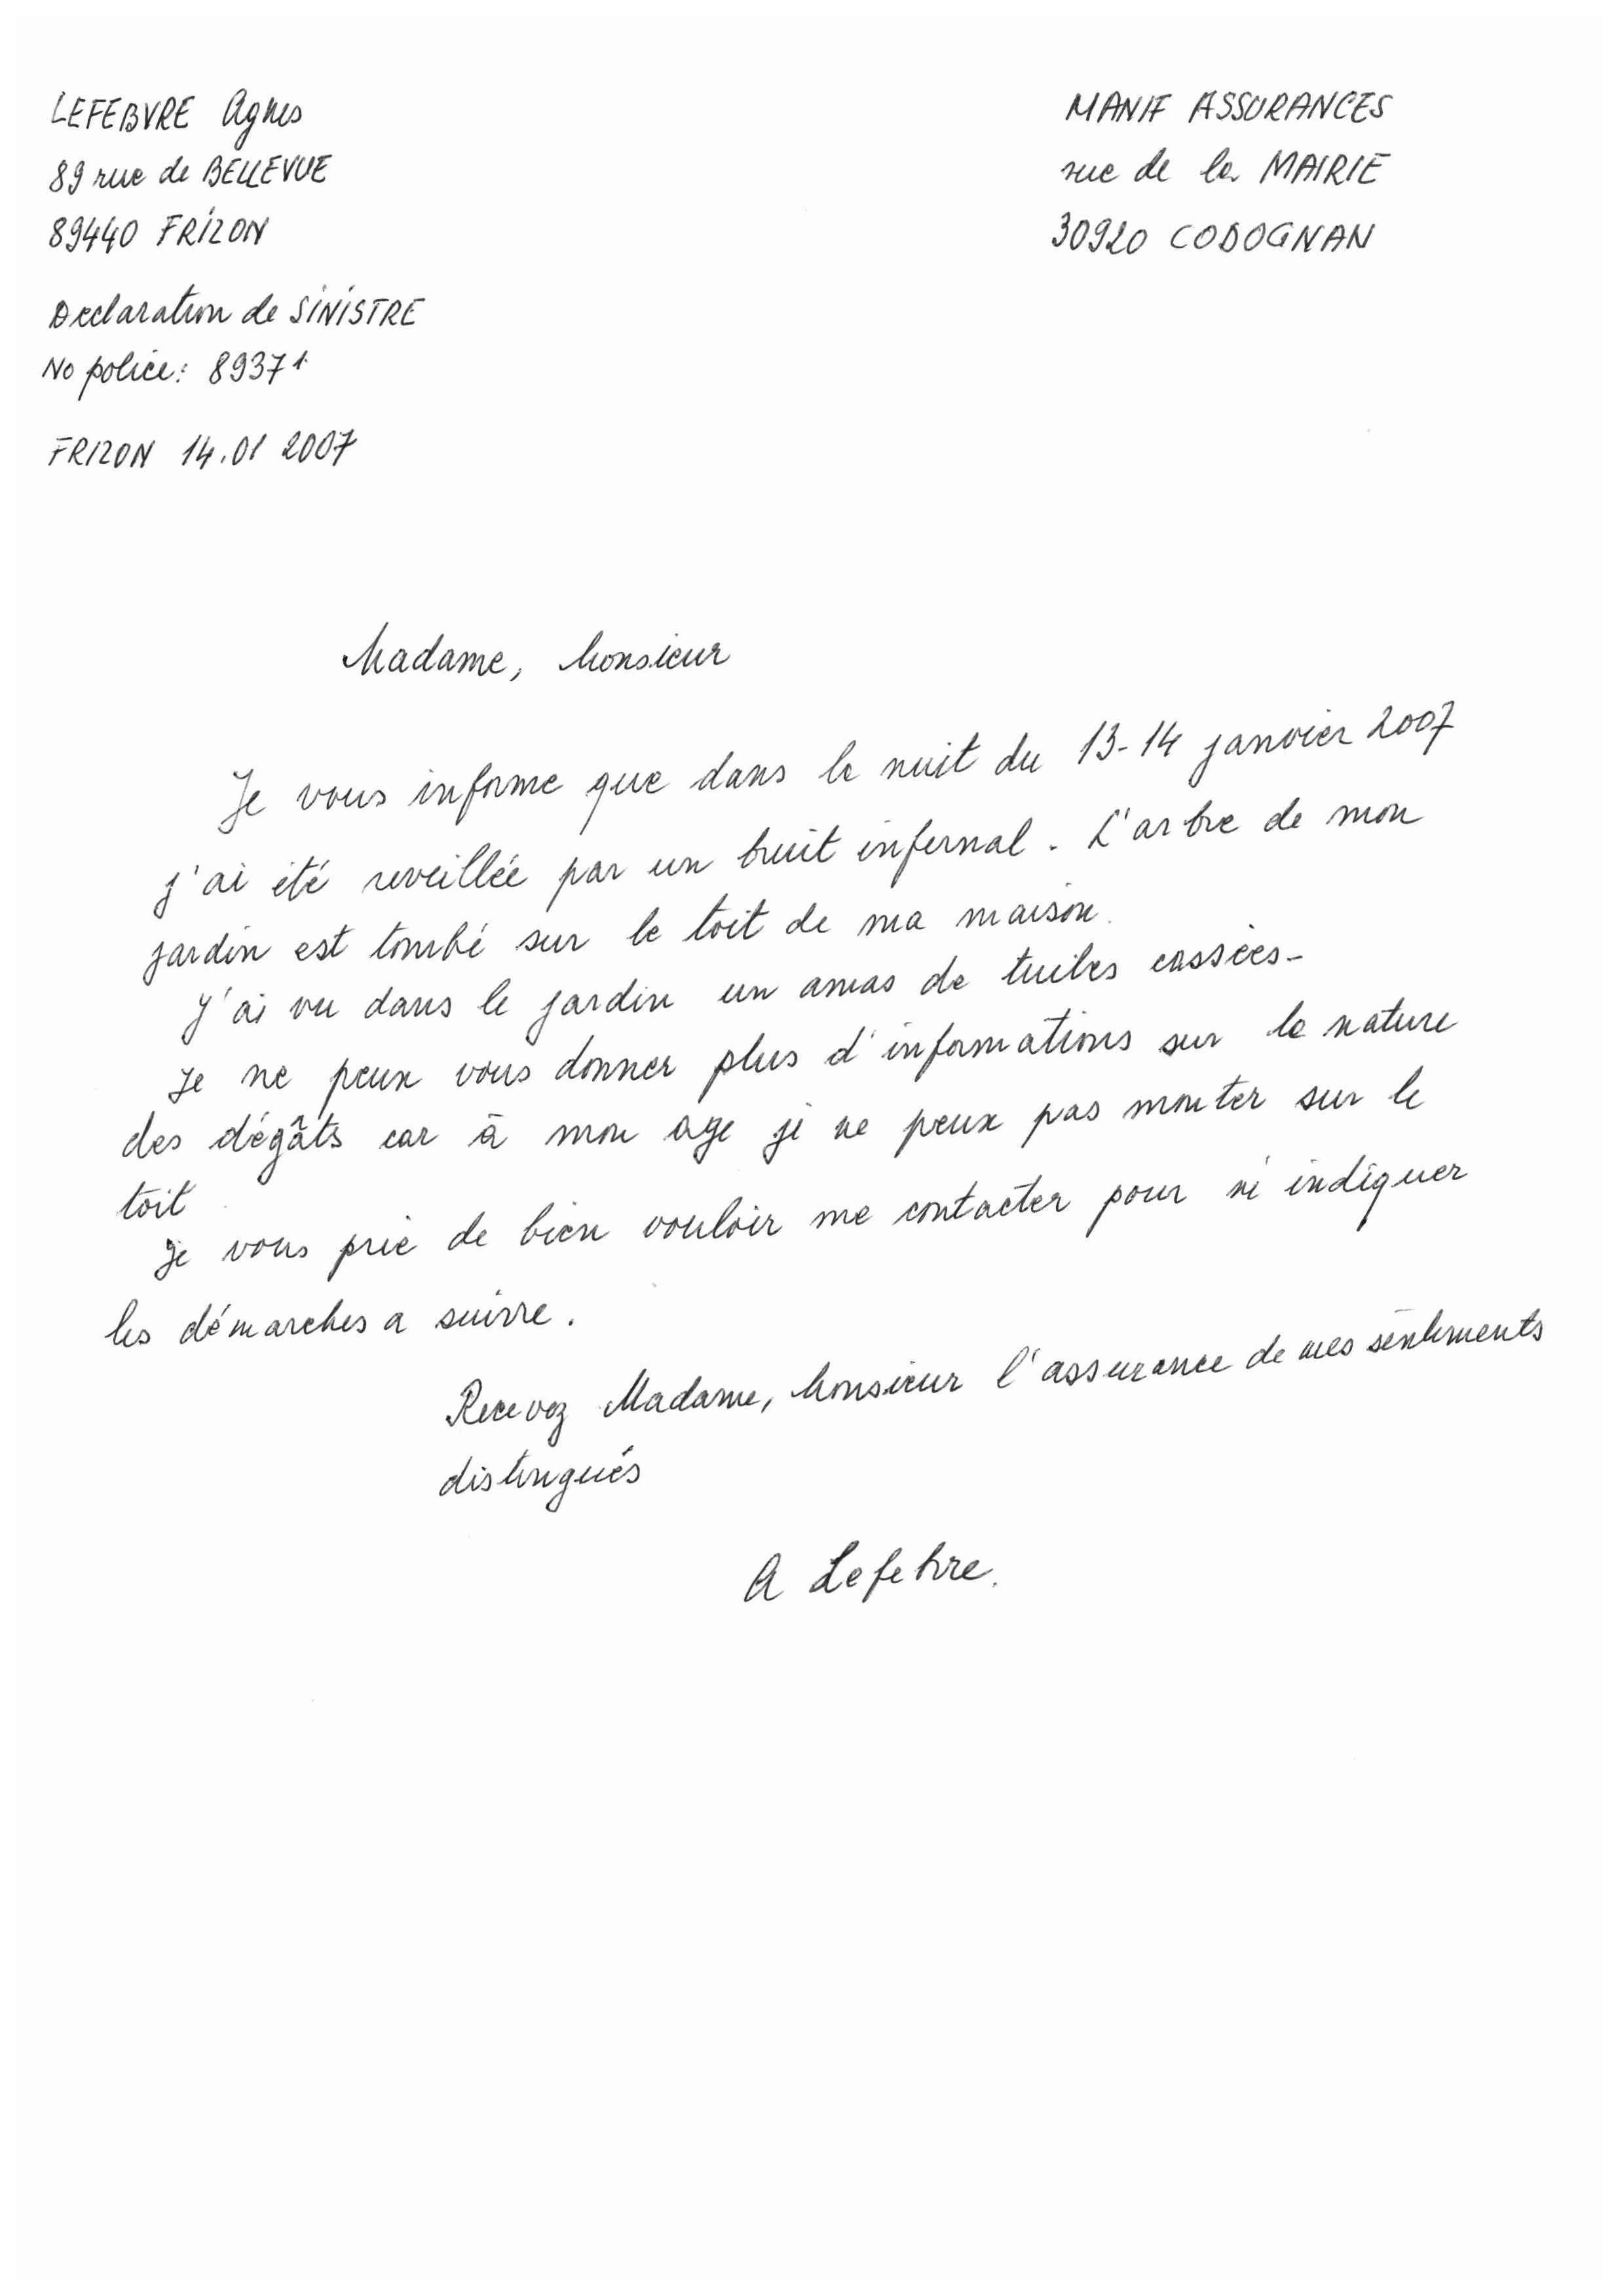 LEFEBVRE Agnes
89 rue de BELLEVUE
89440 FRIZON
MANIF ASSURANCES
rue de la MAIRIE
30920 CODOGNAN
Declaration de SINISTRE
No police: 89371
FRIZON 14.01 2007
Madame, Monsieur
Je vous informe que dans la nuit du 13-14 janvier 2007
j'ai été reveillée par un bruit infernal. L'arbre de mon
jardin est tombé sur le toit de ma maison.
J'ai vu dans le jardin un amas de tuiles cassées-
Je ne peux vous donner plus d'informations sur la nature
des dégâts car à mon age je ne peux pas monter sur le
toit
Je vous prie de bien vouloir me contacter pour m'indiquer
les démarches a suivre.
Recevez Madame, Monsieur l'assurance de mes sentiments
distingués
A Lefebvre.